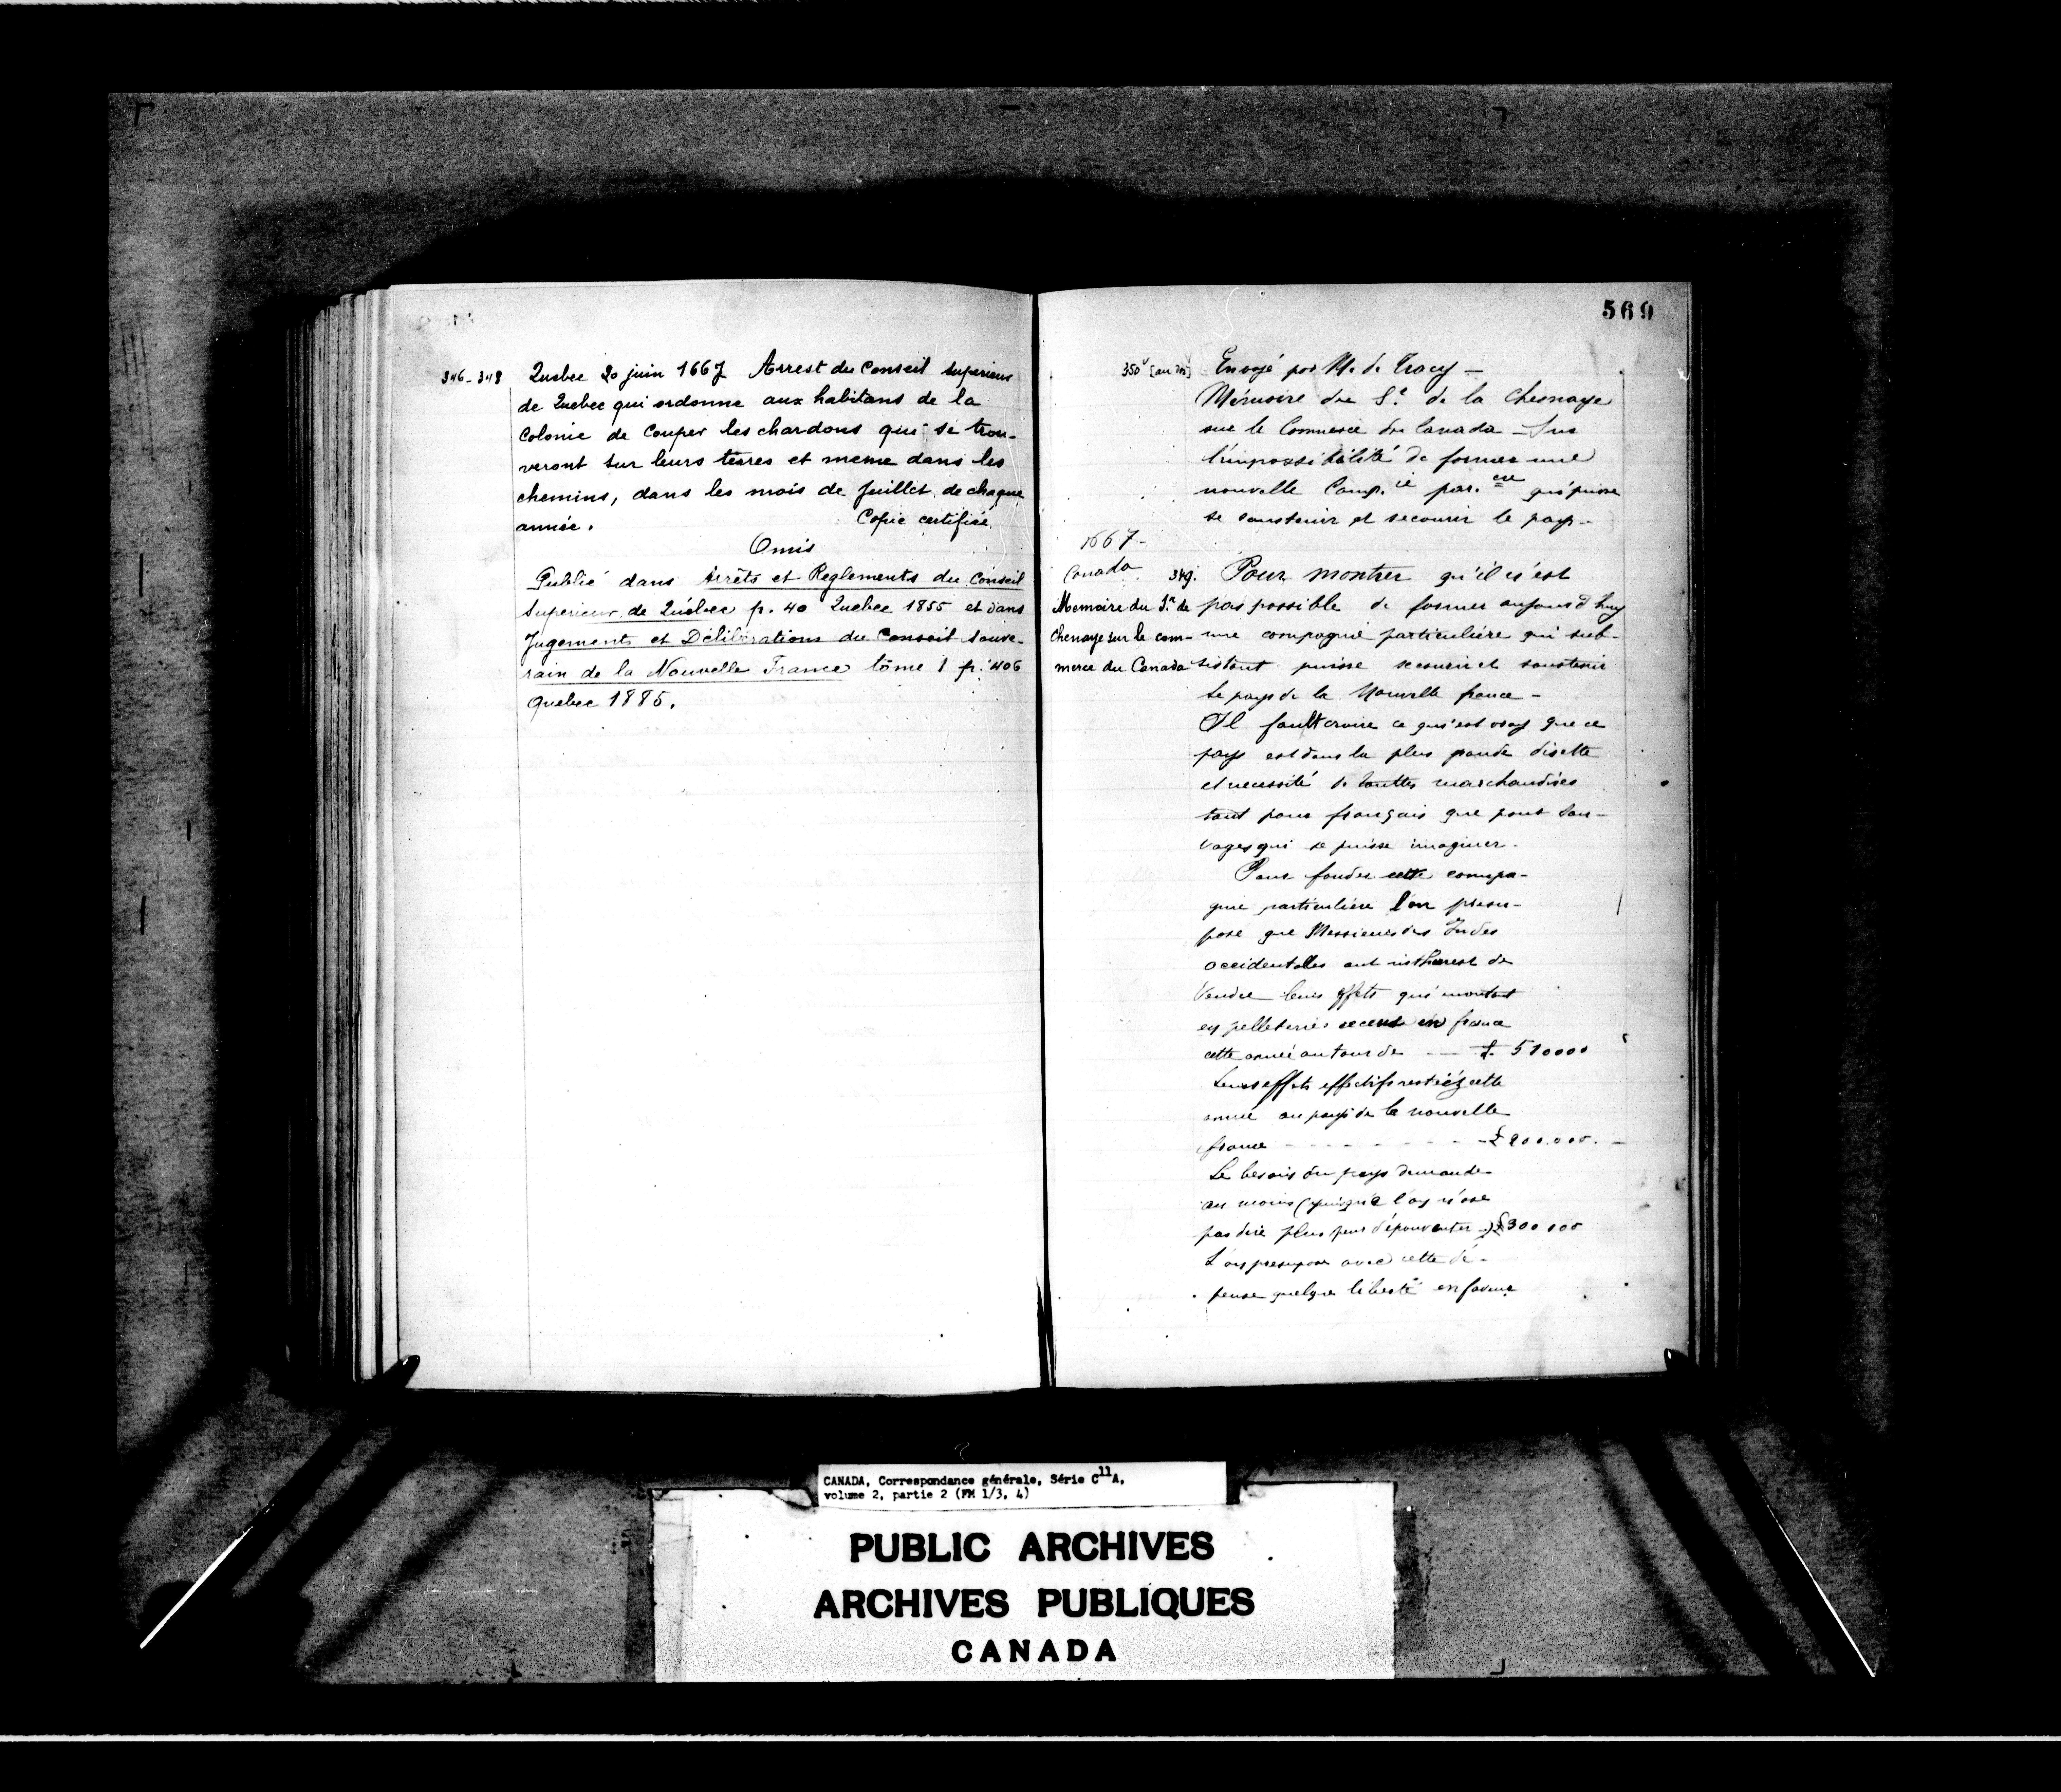 346-348 Quebec 20 juin 1667 Arrest du Conseil superieur
de Quebec qui ordonne aux habitans de la
Colonie de Couper les chardons qui se trou-
veront sur leurs terres et meme dans les
chemins, dans les mois de Juillet de chaque
année. Copie certifiée.
Omis
Publié dans Arrêts et Reglements du Conseil
Superieur de Québec p. 40 Quebec 1855 et dans
Jugements et Délibérations du Conseil Souve-
rain de la Nouvelle France tôme 1 p. 406
Quebec 1885.
569
350v [au dos] Envoyé par M. de Tracy —
Mémoire du Sr. de la Chesnaye
sur le Commerce du Canada — Sur
l'impossibilité de former une
nouvelle Comp.ie par.ere qui puisse
se soustenir et secourir le pays-
1667-
Canada
Memoire du Sr. de
Chenaye sur le com-
merce du Canada
349. Pour montrer qu'il n'est
pas possible de former aujourd'huy
une compagnie particulière qui sub-
sistant puisse secourir et soustenir
le pays de la Nouvelle france -
Il fault croire ce qui est vray que ce
pays est dans la plus grande disette
et necessité de touttes marchandises
tant pour français que pour Sau-
vages qui se puisse imaginer.
Pour fonder cette compa-
gnie particulière l'on presu-
pose que Messieurs des Indes
occidentalles ont inthérest de
Vendre leurs effets qui montent
en pelleteries receus en france
cette année autour de — £ 510000
Leurs effets effectifs restéz cette
année au pays de la nouvelle
france - - - - - - - £ 200.000. —
Le besoin du pays demande
au moins (puisque l'oy n'ose
pas dire plus peur d'épouvanter -) £ 300 000
L'oy presupose avec cette dé-
pense quelque liberté en faveur
CANADA, Correspondance générale, Série C11A,
volume 2, partie 2 (FM 1/3, 4)
PUBLIC ARCHIVES
ARCHIVES PUBLIQUES
CANADA